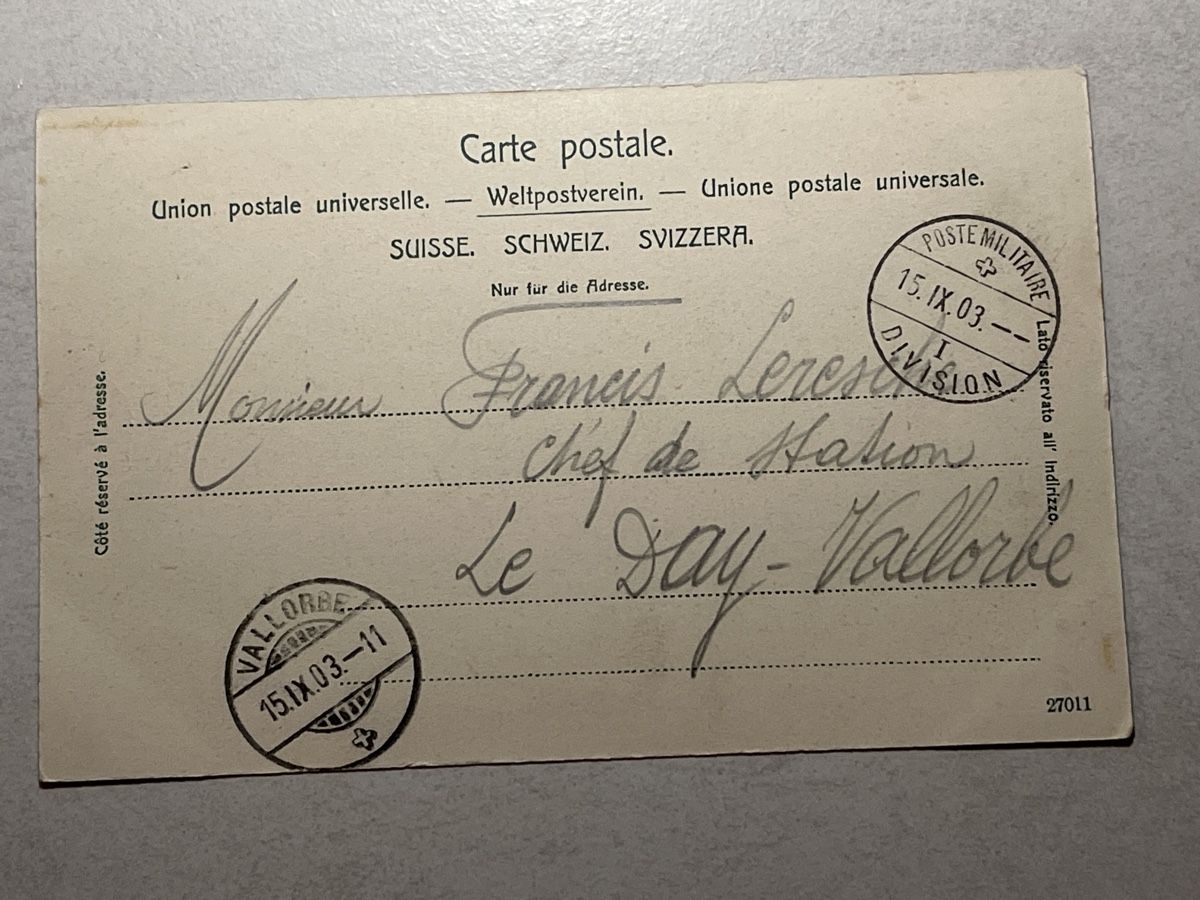 Carte postale.
Union postale universelle. — Weltpostverein. — Unione postale universale.
SUISSE. SCHWEIZ. SVIZZERA.
Nur für die Adresse.
POSTE MILITAIRE
15.IX.03.--
I
DIVISION
Côté réservé à l'adresse.
Lato riservato all' Indirizzo.
Monsieur Francis Leresche
Chef de Station
Le Day-Vallorbe
VALLORBE
15.IX.03.-11
27011